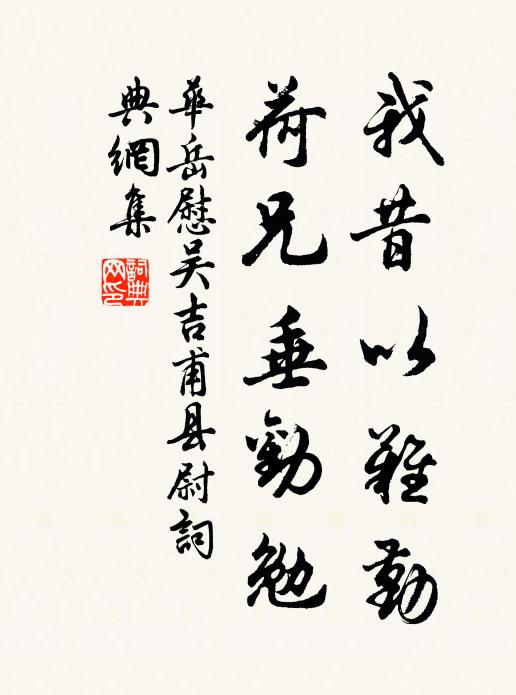 我昔以難勤
荷兄垂勸勉
華岳慰吴吉甫县尉詞
典網集
詞典
网印